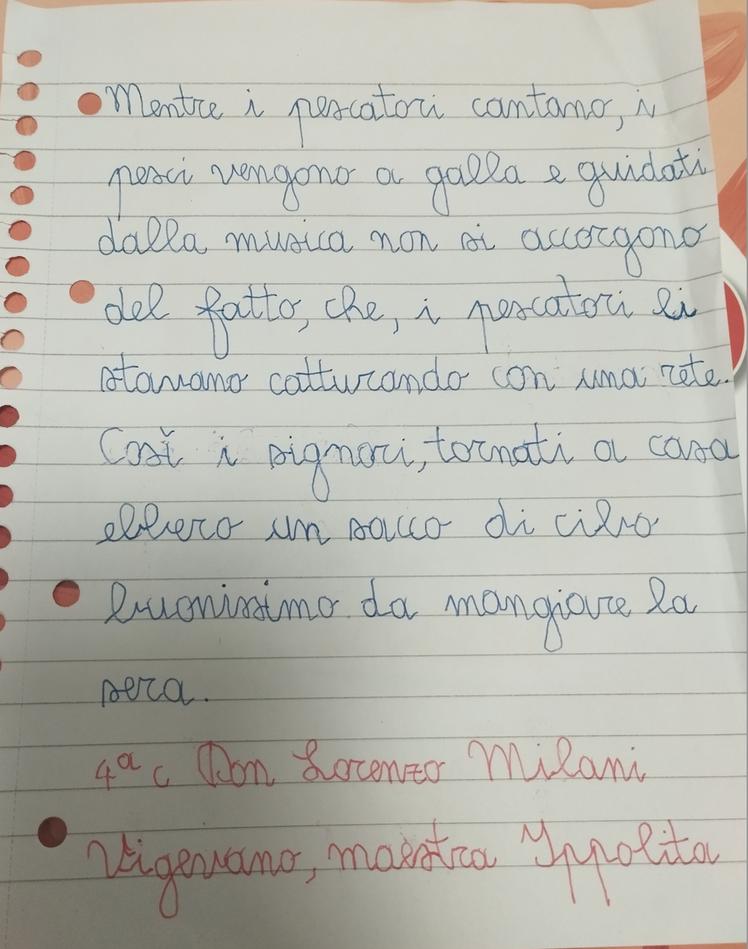 Mentre i pescatori cantano, i
pesci vengono a galla e guidati
dalla musica non si accorgono
del fatto, che, i pescatori li
stavano catturando con una rete.
Così i signori, tornati a casa
ebbero un sacco di cibo
buonissimo da mangiare la
sera.
4ª c Don Lorenzo Milani
Vigevano, maestra Yppolita